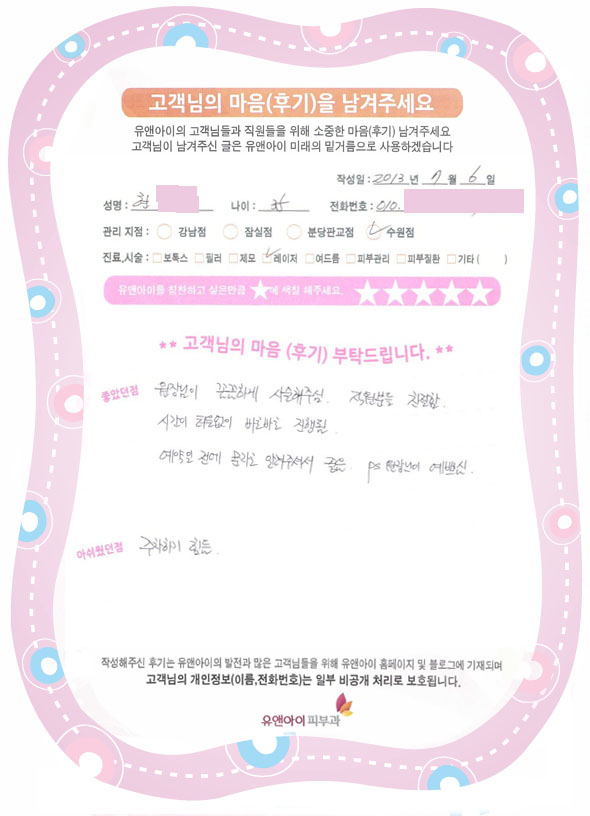 고객님의 마음(후기)을 남겨주세요
유앤아이의 고객님들과 직원들을 위해 소중한 마음(후기) 남겨주세요
고객님이 남겨주신 글은 유앤아이 미래의 밑거름으로 사용하겠습니다
작성일 : 2013 년 7 월 6 일
성명 : 나이 : 전화번호 : 010.
관리 지점 : 강남점 잠실점 분당판교점 수원점
진료,시술 : 보톡스 필러 제모 레이저 여드름 피부관리 피부질환 기타 ( )
유앤아이를 칭찬하고 싶은만큼 ★에 색칠 해주세요. ★★★★★
** 고객님의 마음 (후기) 부탁드립니다. **
좋았던점 원장님이 꼼꼼하게 시술해주심. 직원분들 친절함.
시간이 터울없이 바로바로 진행됨.
예약일 전에 문자로 알려주셔서 좋음. ps 원장님이 예쁘심.
아쉬웠던점 주차하기 힘듦.
작성해주신 후기는 유앤아이의 발전과 많은 고객님들을 위해 유앤아이 홈페이지 및 블로그에 기재되며
고객님의 개인정보(이름,전화번호)는 일부 비공개 처리로 보호됩니다.
유앤아이피부과